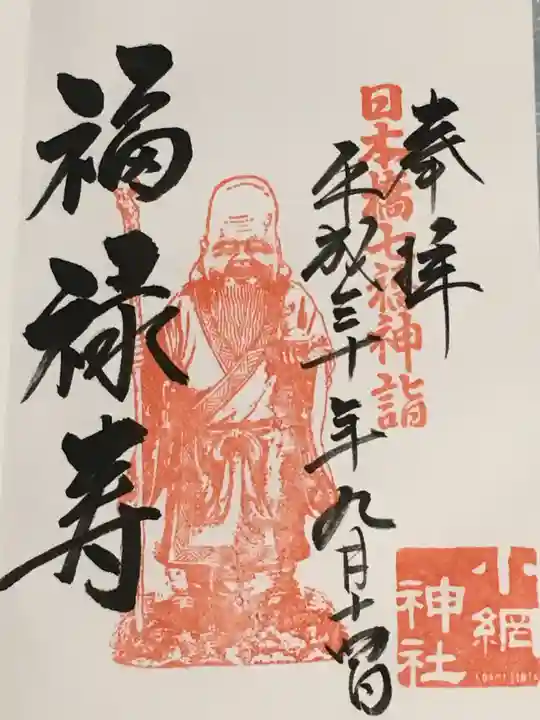 奉拝
日本橋七福神詣
平成三十年九月十四日
福禄寿
小網
神社